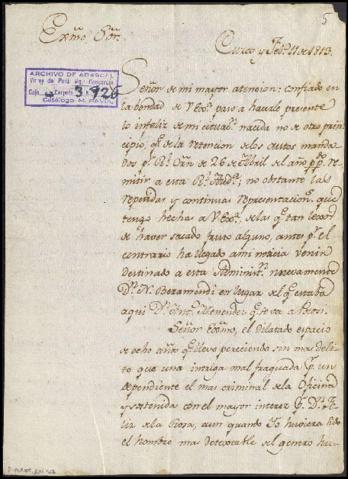 5
Exmo Sor.
Cuzco y Febo. 11 de 1813.
ARCHIVO DE ABASCAL
Virey de Perú
Caja Carpeta
3,926
Catálogo M. RAVIN
Señor de mi mayor atencion: confiado en
la bondad de V.Exa. paso a hacerle presente
lo infeliz de mi situacn. nacida no de otro prin-
cipio qe. de la retencion de los autos manda-
dos pr. Rl. Orn. de 26 de Abril del año ppo. re-
mitir a esta Rl. Auda., no obstante las
repetidas y continuas representacions. que
tengo hechas a V.Exa. de las qe. tan lexos
de haver sacado fruto alguno, antes pr. el
contrario ha llegado a mi noticia venir
destinado a esta Administn. nuevamente
Dn. N. Beramendi en lugar de el qe. estaba
aqui Dn. Anto. Menendez qe. se va a Potosi.
Señor Exmo, el dilatado espacio
de ocho años qe. llevo pereciendo sin mas deli-
to que una intriga mal fraguada pr. un
dependiente el mas criminal de la Oficina
y sostenida con el mayor interes pr. Dn. Fe-
lix de la Rosa, aun quando Yo huviera sido
el hombre mas detextable del genero hu-